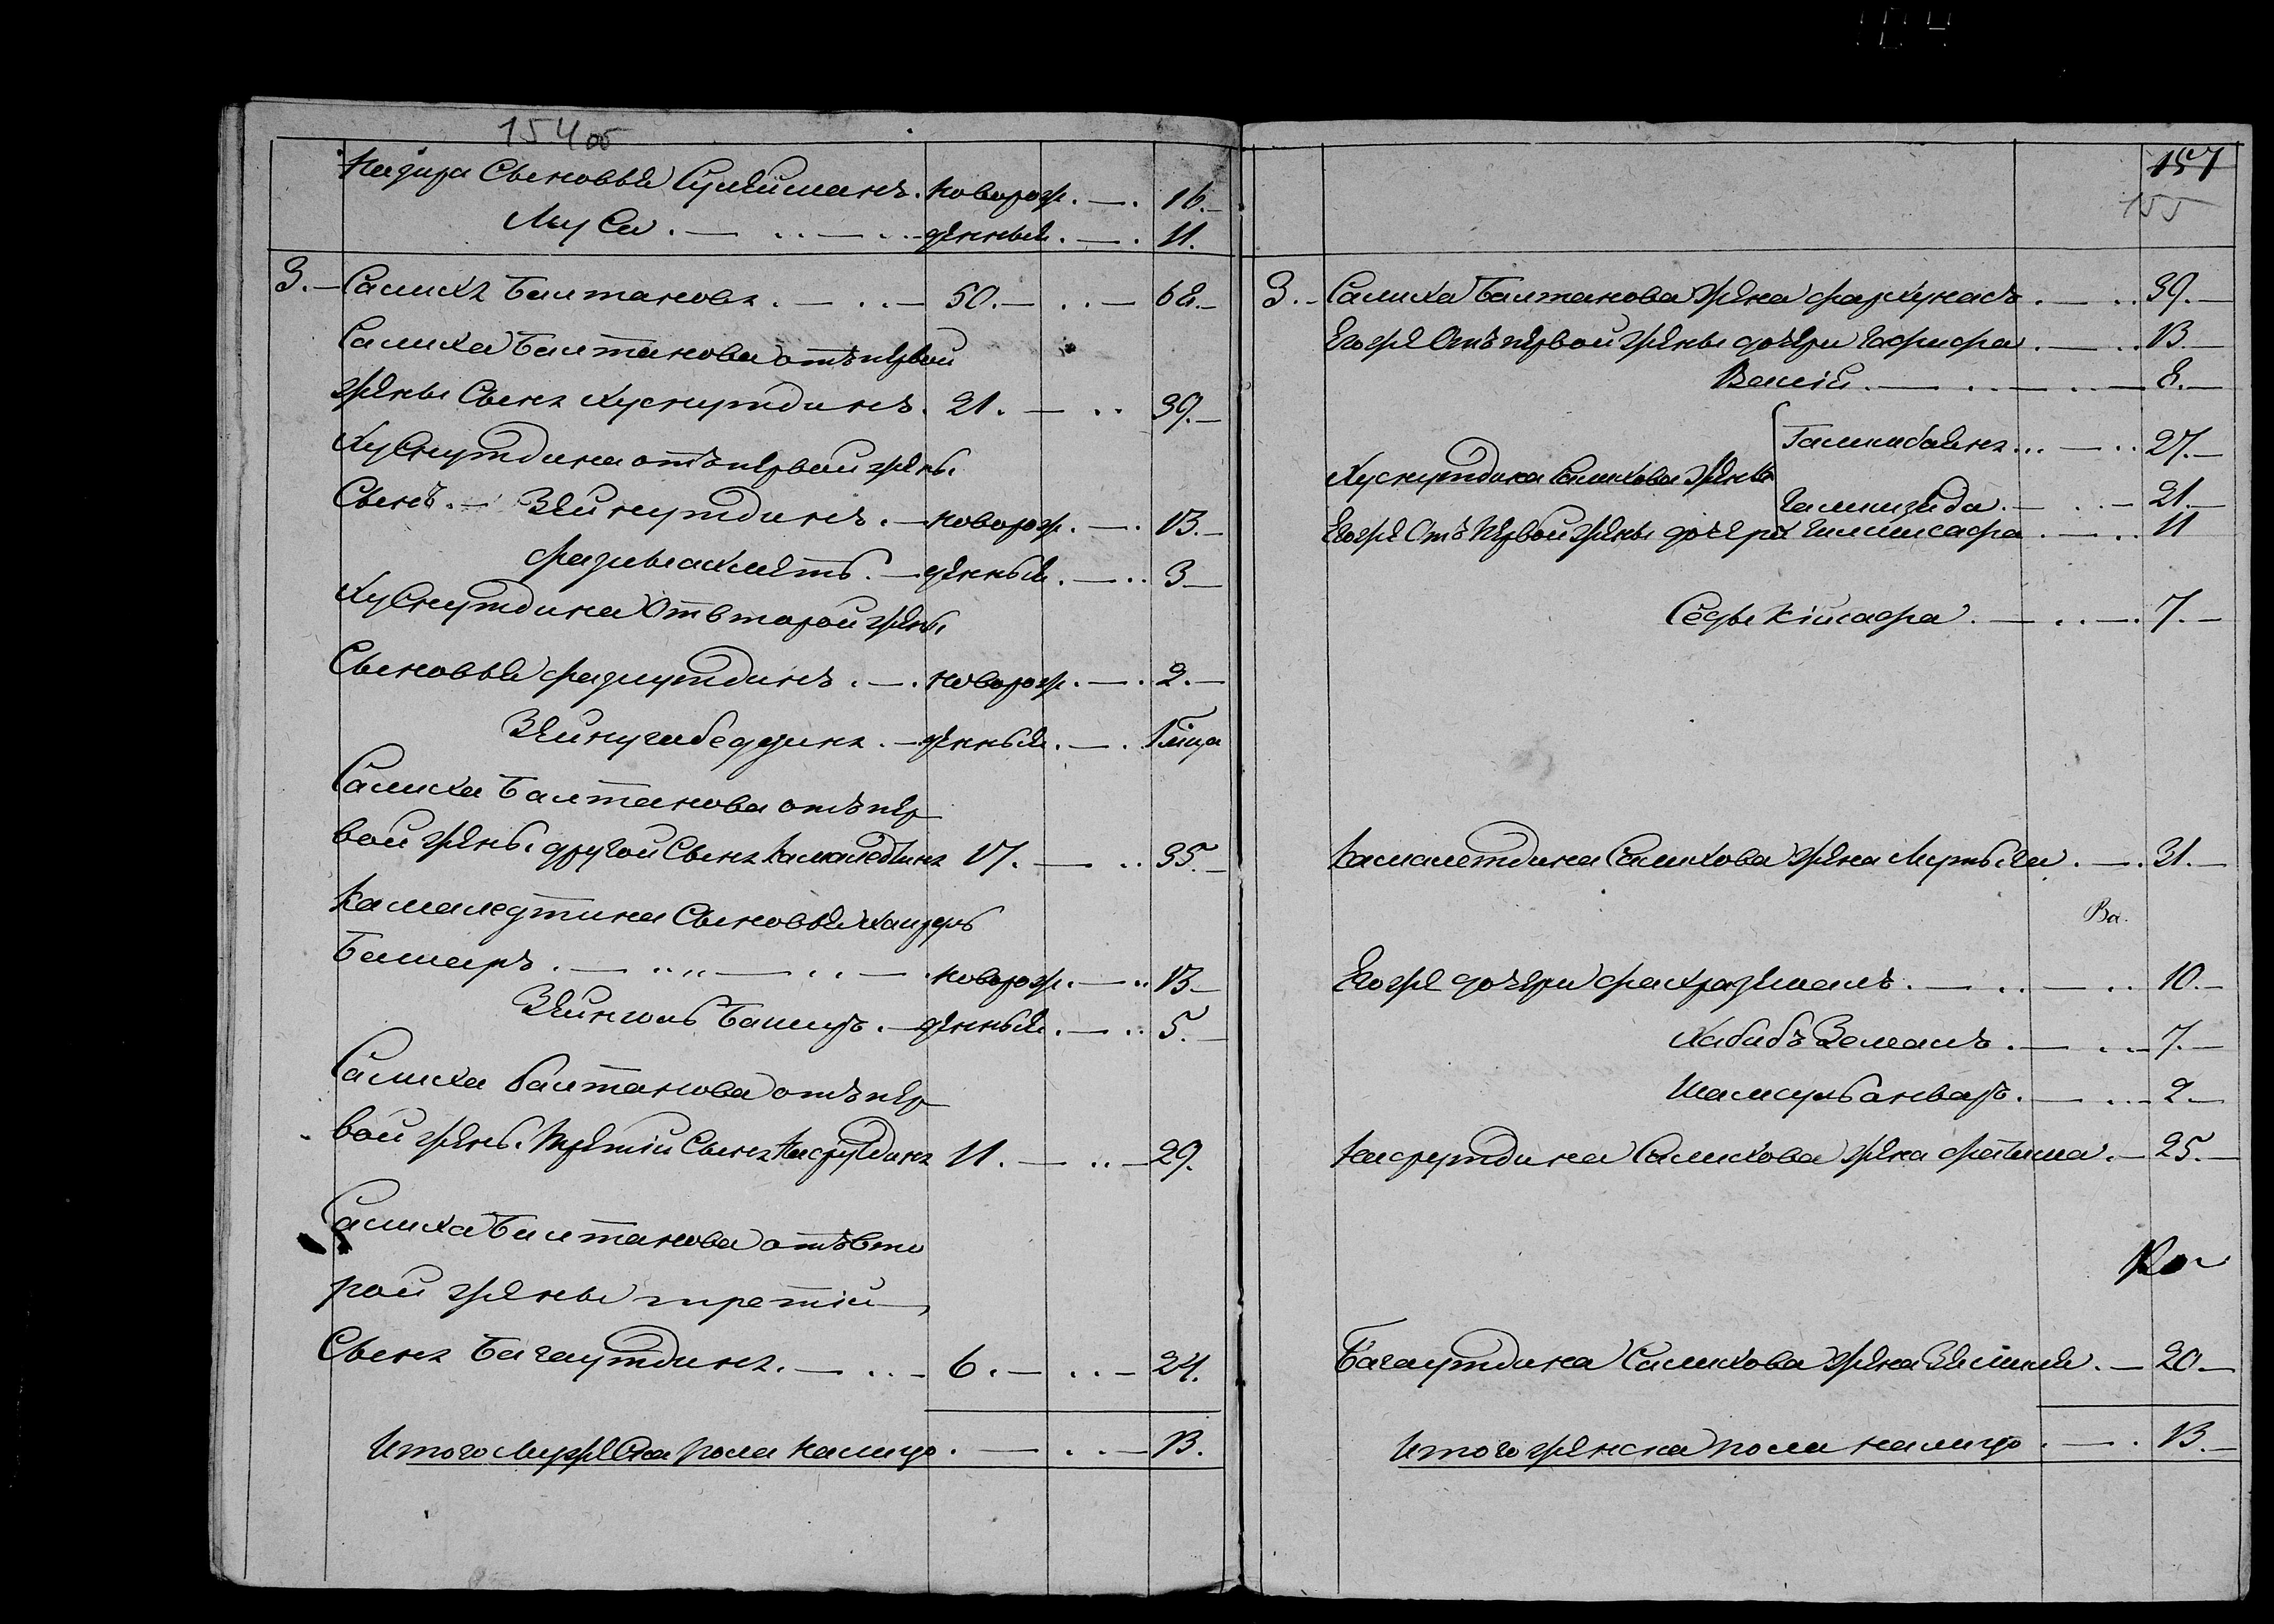 154 об
Надира Сыновья Сулейманъ. новорож. — . 16. —
Муса. — .. — .. — денныя. — . 11.
3. — Салихъ Балтановъ. — .. — 50. — .. — 68. —
Салиха Балтанова отъ первой
жены Сынъ Хуснутдинъ. 21. — .. 39. —
Хуснутдина отъ первой жены
Сынъ. — Зейнутдинъ. — новорож. — . 13. —
Фазлыахметь. — денныя. — .. 3 —
Хуснутдина От второй жены
Сыновья Фазлутдинъ. — . новорож. — . 2. —
Зейнугабеддинъ. — денныя. — . 1 м҃ца
Салиха Балтанова отъ пер
вой жены другой Сынъ Камаледтинъ 17. — .. 35. —
Камаледтина Сыновья
Башаръ. — .. „ — .. — . новорож. — .. 13 —
Зейнголь Башръ. — денныя. — .. 5. —
Салиха Балтанова отъ пер
вой жены. Третій Сынъ Насрутдинъ 11. — .. — 29.
Салиха Балтанова отъ вто
рой жены третій
Сынъ Багаутдинъ. — .. — 6. — .. — 24.
Итого Мужеска пола налицо. — .. — 13.
157
155
3. — Салиха Балтанова жена Фархунасъ. — .. 39. —
Егоже Отъ первой жены дочери Гафифа. — .. 13. —
— .. — .. — 8. —
Галлибаянъ ... — .. 27. —
Хуснутдина Салихова жены
Галлизида. — .. — 21. —
Егоже Отъ Первой жены дочери — .. 11
Седыкисафа. — .. — . 7. —
Камалетдина Салихова жена — . 31. —
Ва.
Егоже дочери Фахраземанъ. — .. — .. 10. —
Хабибъ Земалъ. — .. — 7. —
Шамсульанваръ. — .. — 2 —
Насрутдина Салихова жена Фатыма. — 25. —
Багаутдина Салихова жена — 20 —
Итого женска пола налицо. — . 13. —